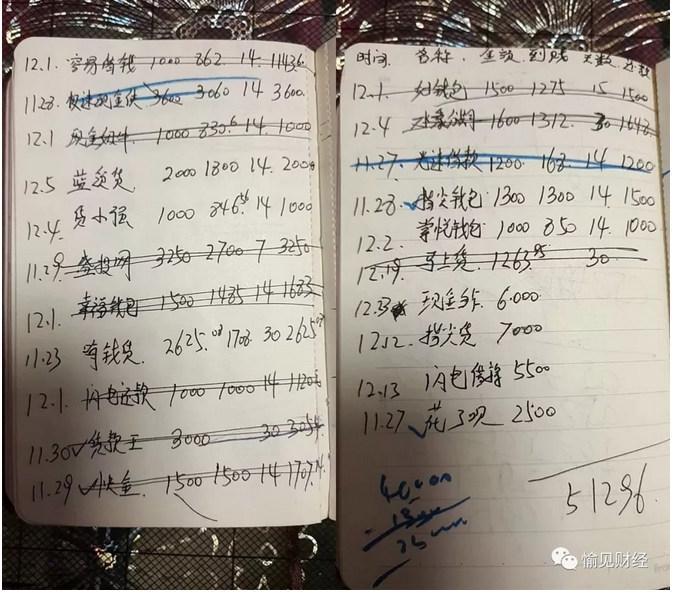 12.1. 容易借钱 1000 862. 14. 1143.6
11.28. 极速现金侠 3600 3060 14 3600.
12.1 现金 1000 830.6 14. 1000
12.5 蓝领贷 2000 1800 14. 2000
12.4. 贷小强 1000 846.56 14 1000
11.29. 投网 3250 2700 7 3250
12.1. 幸福钱包 1500 1485 14 1683
11.23 有钱贷. 2625. 1708. 30 2625
12.1. 闪电还款 1000 1000 14 1120
11.30 ✓贷款王 3000 30 305
11.29 ✓快金. 1500 1500 14 1707.
时间. 名称. 金额. 到账 天数. 还款
12.1. 钱包 1500 1275 15 1500
12.4 1600 1312. 30 1648
11.27. 光速借款 1200. 168. 14 1200
11.28. ✓指尖钱包 1300 1300 14. 1500
12.2. 掌悦钱包 1000 850 14. 1000
12.19. 马上贷. 1263.95 30
12.3 现金 6000
12.12. 指尖贷 7000
12.13 闪电借 5500
11.27 ✓花了呗 2500
51296.
愉见财经